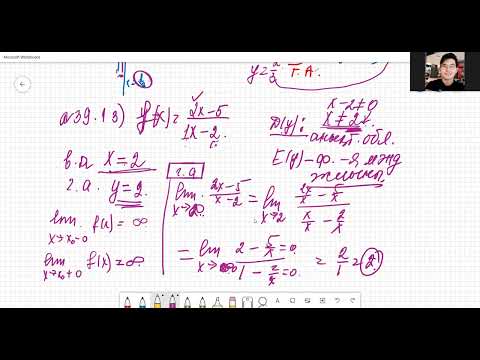 Microsoft Whiteboard
y = 2/3
Г.А.
№39.1 3) f(x) = 2x-5 / 1x-2
x-2≠0
D(y): x≠2
анықт. обл.
E(y)-ф.
в.а x=2
г.а. y=2
г.а
lim x→∞ 2x-5 / x-2 = lim x→2 2x/x - 5/x / x/x - 2/x
lim x→x₀-0 f(x) = ∞
lim x→x₀+0 f(x) = ∞
= lim x→∞ 2 - 5/x = 0 / 1 - 2/x = 0 = 2/1 = 2